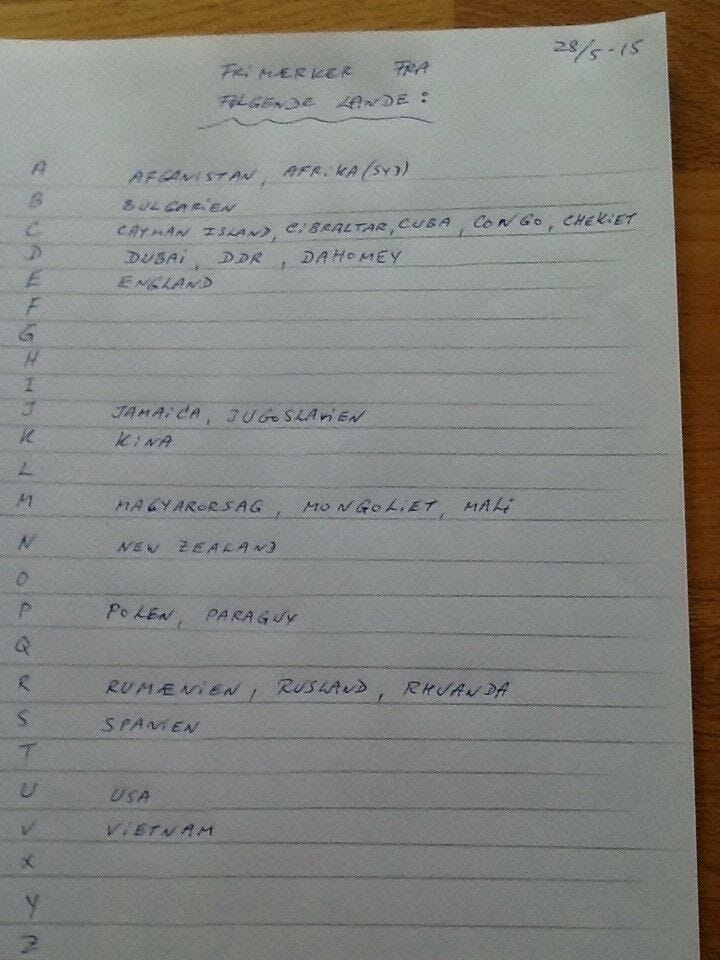 28/5-15
FRIMÆRKER FRA
FØLGENDE LANDE:
A AFGANISTAN, AFRIKA (SYD)
B BULGARIEN
C CAYMAN ISLAND, CIBRALTAR, CUBA, CONGO, CHEKIET
D DUBAI, DDR, DAHOMEY
E ENGLAND
F
G
H
I
J JAMAICA, JUGOSLAVIEN
K KINA
L
M MAGYARORSAG, MONGOLIET, MALI
N NEW ZEALAND
O
P POLEN, PARAGUY
Q
R RUMÆNIEN, RUSLAND, RHUANDA
S SPANIEN
T
U USA
V VIETNAM
X
Y
Z